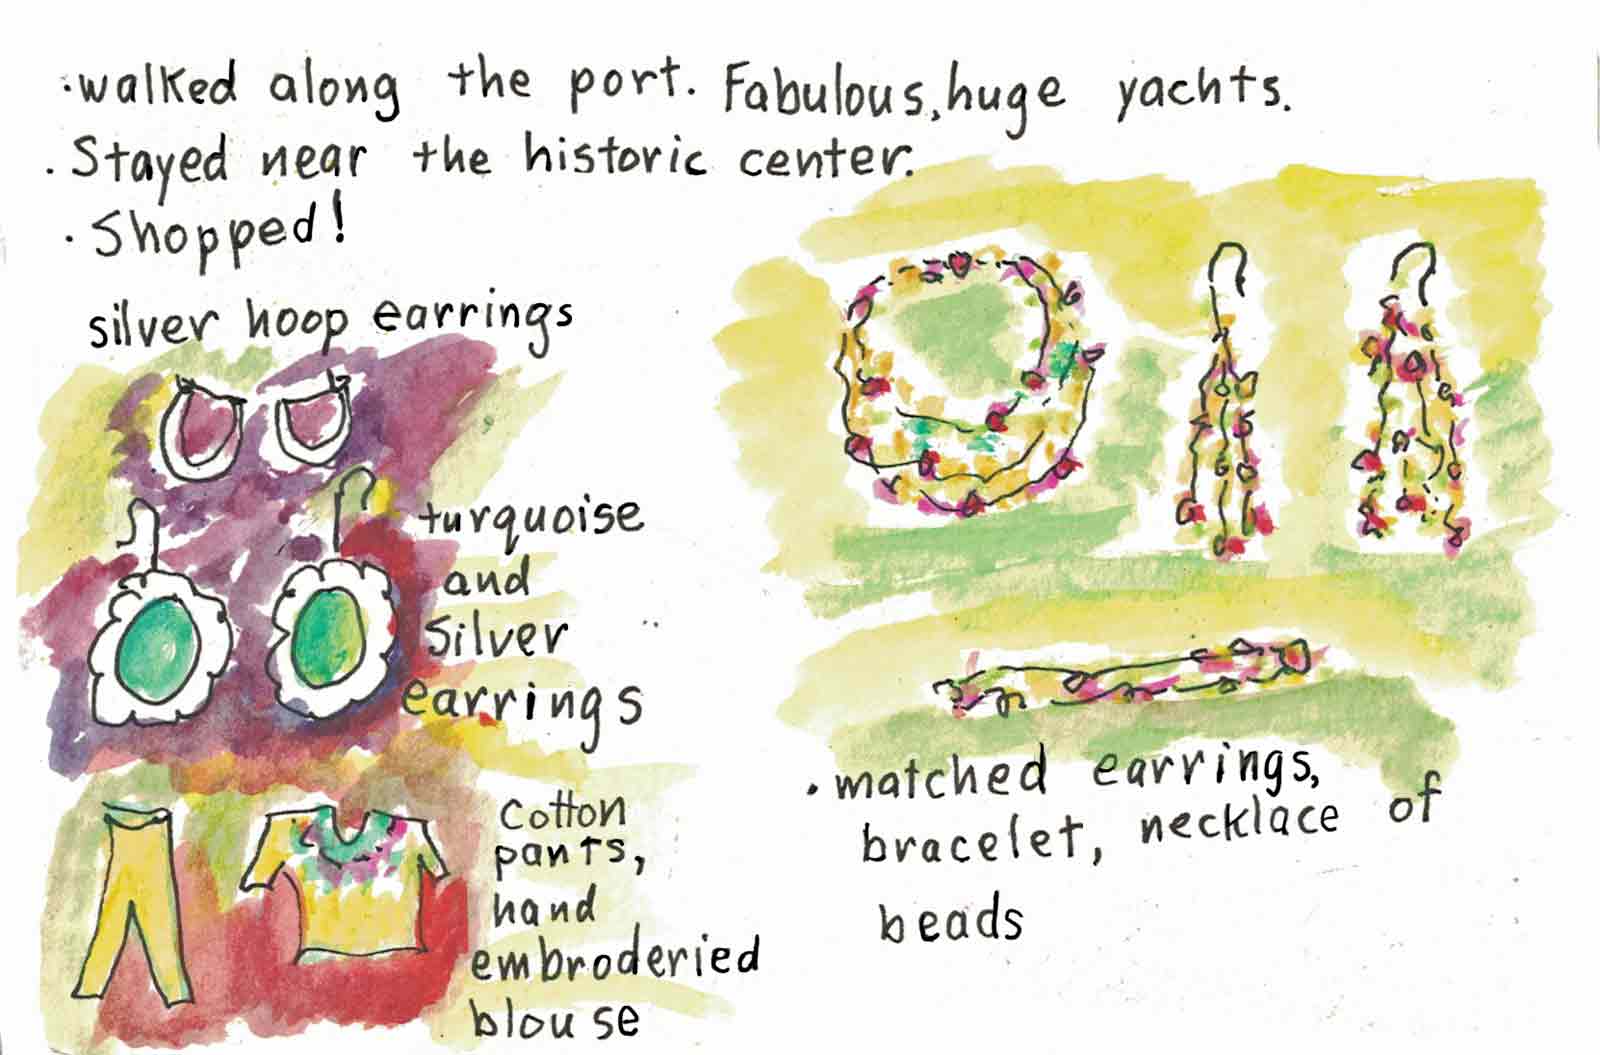 ·walked along the port. Fabulous, huge yachts.
·Stayed near the historic center.
·Shopped!
silver hoop earrings
turquoise
and
Silver
earrings
cotton
pants,
hand
embroderied
blouse
·matched earrings,
bracelet, necklace of
beads